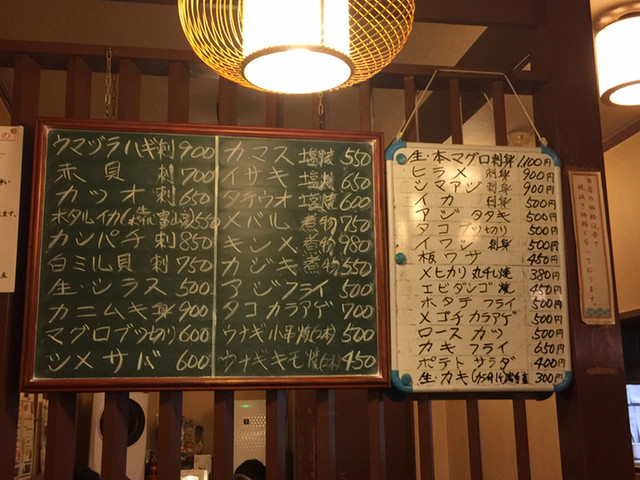 ウマヅラハギ刺 900
赤貝 刺 700
カツオ 刺 650
ホタルイカ 富山 550
カンパチ 刺 850
白ミル貝 刺 750
生・シラス 500
カニムキ身 900
マグロブツ切り 600
シメサバ 600
カマス 塩焼 550
イサキ 塩焼 650
タチウオ 塩焼 600
メバル 煮物 750
キンメ 煮物 980
カジキ 煮物 550
アジフライ 500
タコカラアゲ 700
ウナギ小串焼(2本) 500
ウナギキモ焼 450
生・本マグロ刺身 1100円
ヒラメ 刺身 900円
シマアジ 刺身 900円
イカ 刺身 500円
アジ タタキ 500円
タコ ブツ切り 500円
イワシ 刺身 500円
板ワサ 450円
メヒカリ 丸干し焼 380円
エビダンゴ 揚 450円
ホタテ フライ 500円
メゴチ カラアゲ 500円
ロースカツ 500円
カキフライ 650円
ポテトサラダ 400円
生・カキ 300円
当店の価格は全て
税抜き価格となっております。